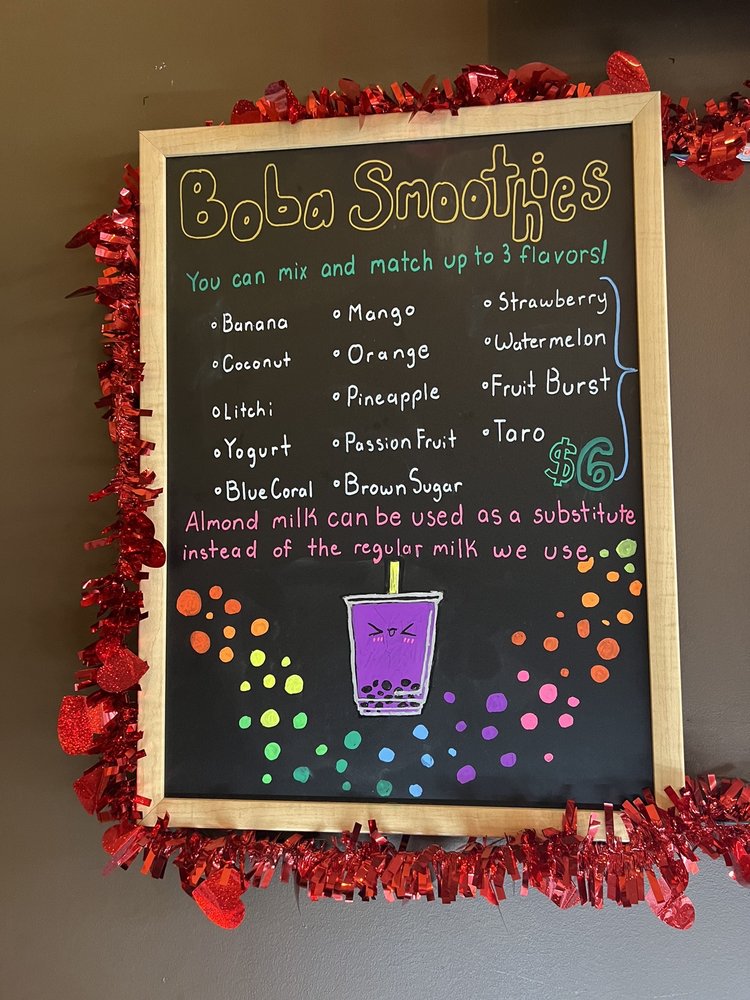 Boba Smoothies
You can mix and match up to 3 flavors!
Banana
Coconut
Litchi
Yogurt
Blue Coral
Mango
Orange
Pineapple
Passion Fruit
Brown Sugar
Strawberry
Watermelon
Fruit Burst
Taro
$6
Almond milk can be used as a substitute
instead of the regular milk we use